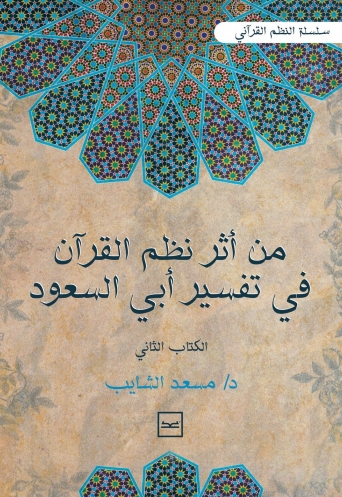 سلسلة النظم القرآني
من أثر نظم القرآن
في تفسير أبي السعود
الكتاب الثاني
د/ مسعد الشايب